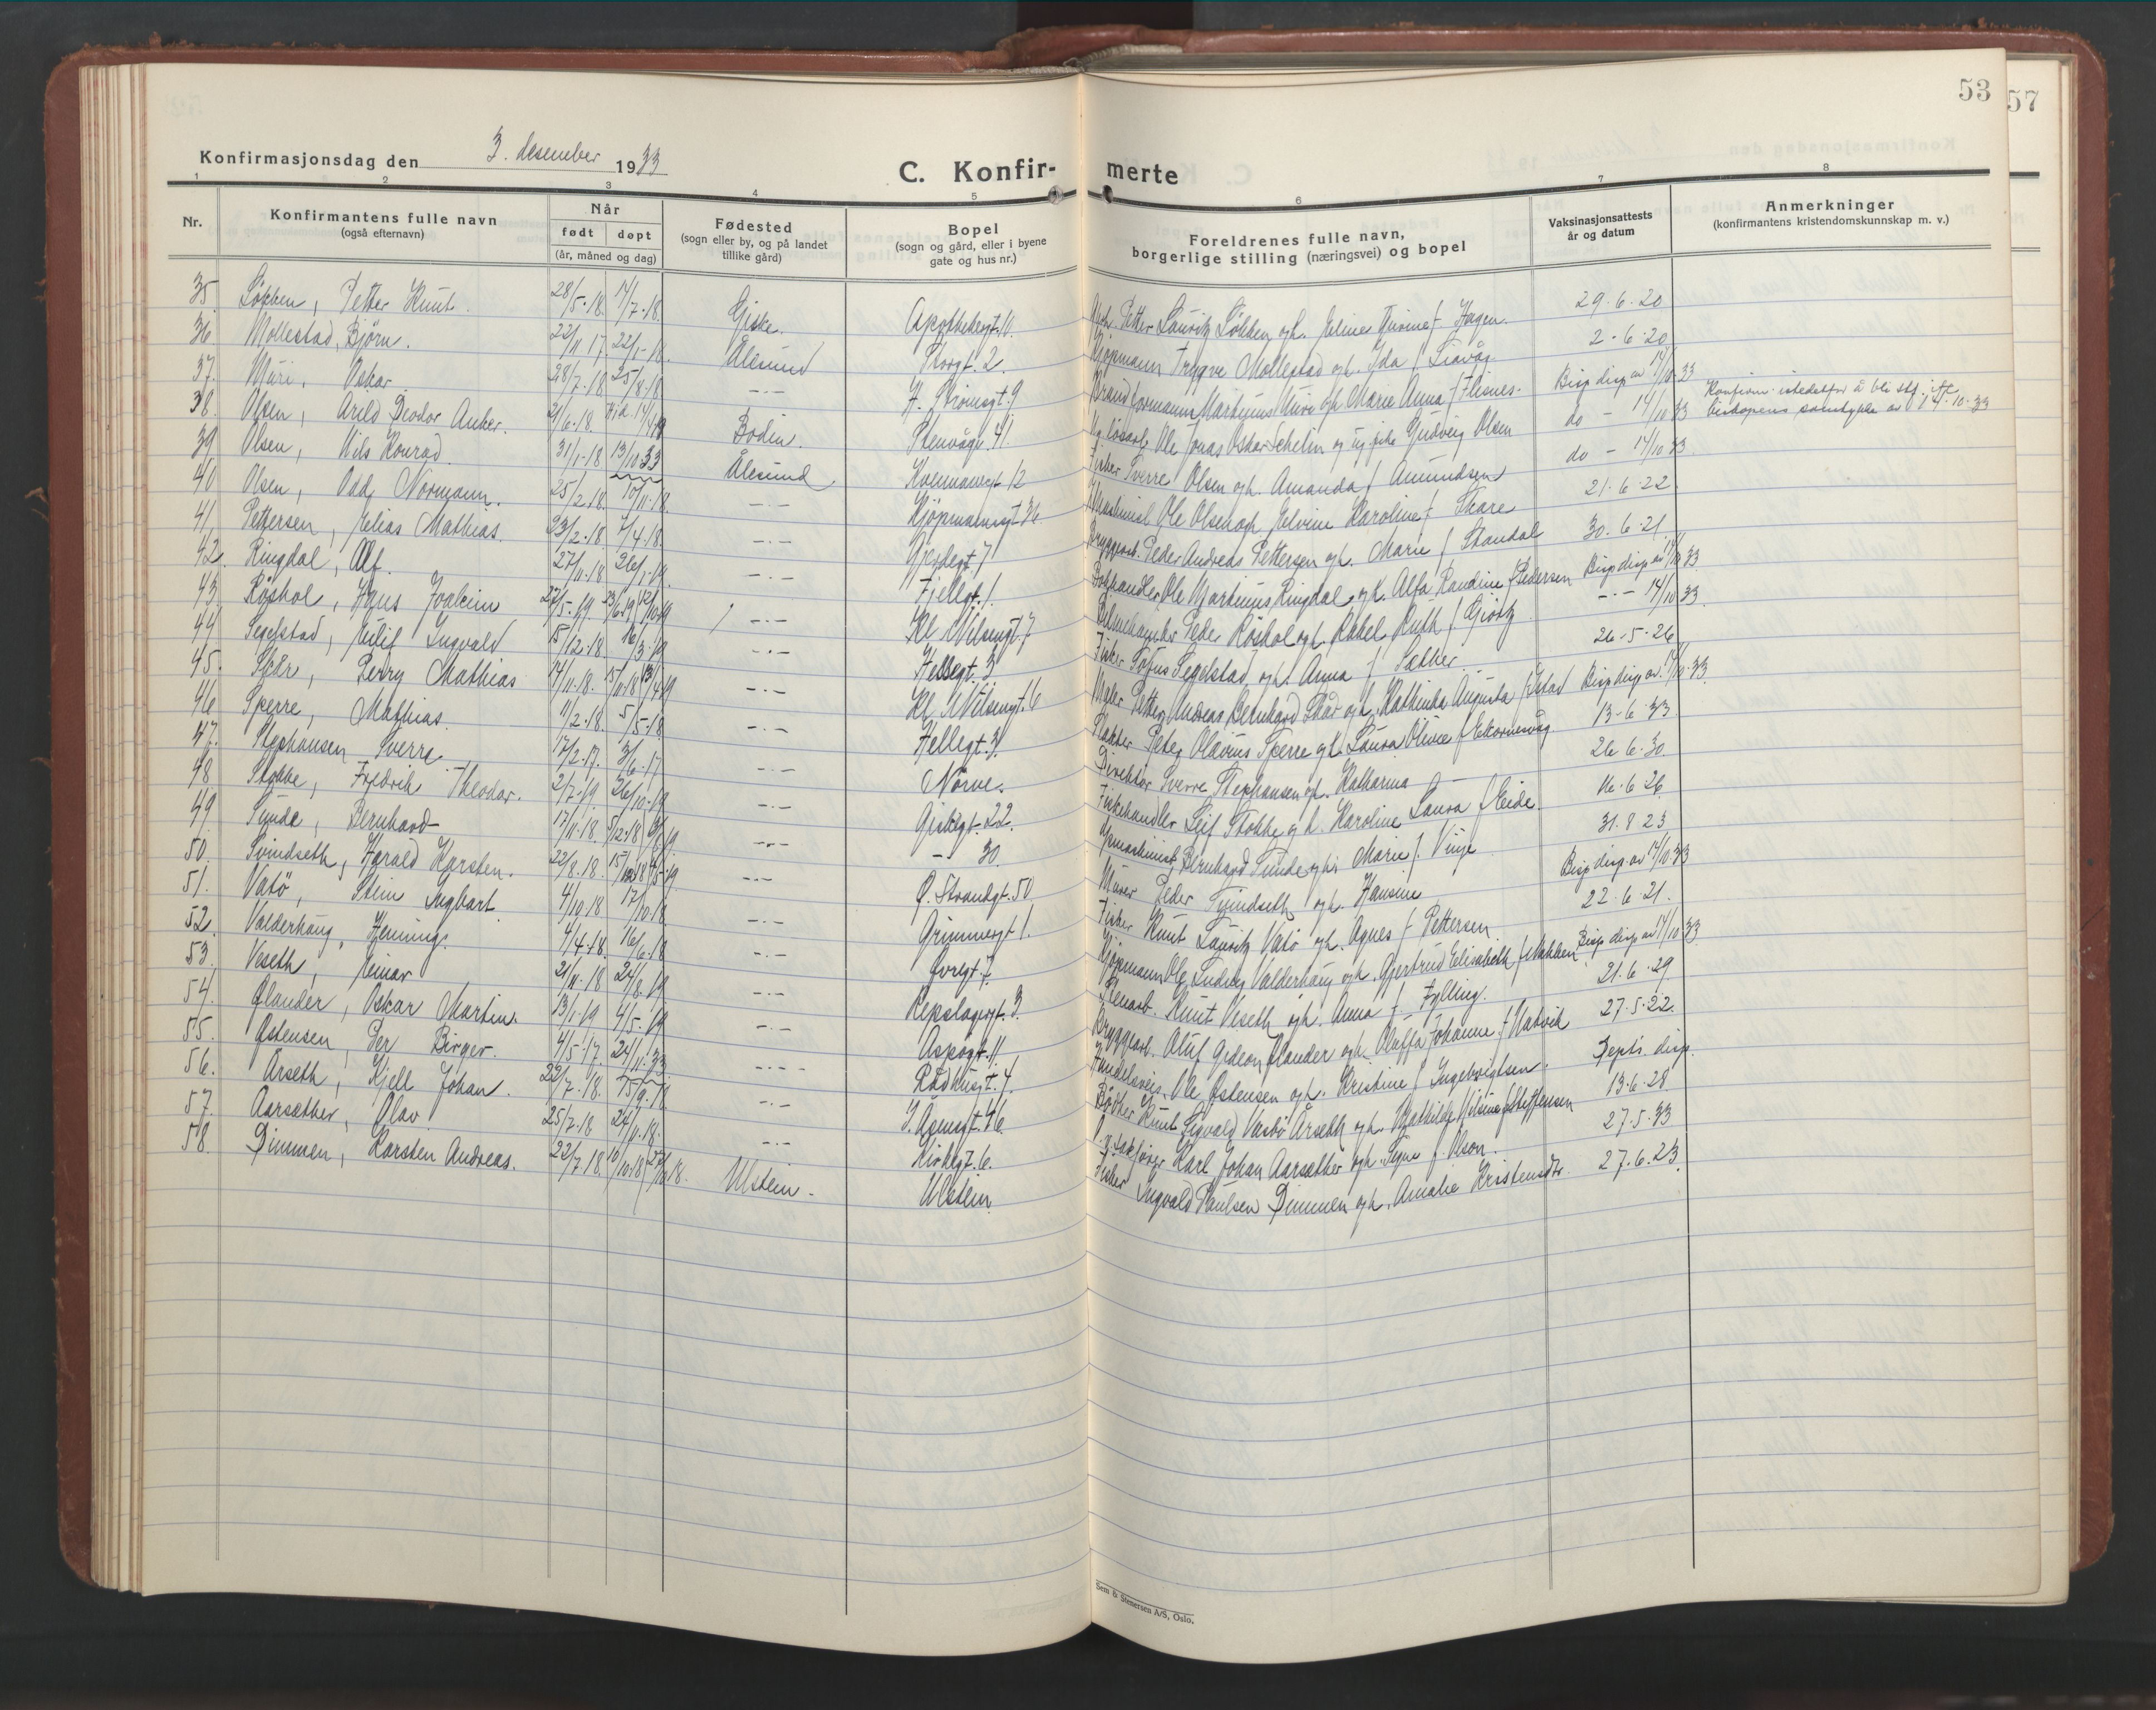 53
57
Konfirmasjonsdag den 3. desember 1933
C. Konfir-
merte
1 2 3 4 5 6 7 8
Nr.
Konfirmantens fulle navn
(også efternavn)
Når
født døpt
(år, måned og dag)
Fødested
(sogn eller by, og på landet
tillike gård)
Bopel
(sogn og gård, eller i byene
gate og hus nr.)
Foreldrenes fulle navn,
borgerlige stilling (næringsvei) og bopel
Vaksinasjonsattests
år og datum
Anmerkninger
(konfirmantens kristendomskunnskap m. v.)
35. Løkken, Petter Knut. 28/5.18. 14/7.18. Giske. Apothekergt. 11. Petter Lauritz Løkken og h. Jeline f. Hagen. 29.6.20
36. Mollestad, Bjørn. 22/11.17. 22/1.18. Ålesund Storgt. 2. Kjøpmann Trygve Mollestad og h. Ida f. Liavåg. 2.6.20
37. Muri, Oskar 28/7.18 25/8.18 -.- H. Strømsgt. 9 Brandformann Martinus Muri og h. Marie Anna f. Flisnes. Bisp. disp. av 14/10.33
38. Olsen, Areld Deodor Anker. 21/6.18. Bodin. Stenvågv. 41. Ole Jonas Oskar Schelin og ug. pike Gudveig Olsen do - 14/10 33
39 Olsen, Nils Konrad. 31/1.18 13/10 33 Ålesund Kvennavegt 12 Fisker Sverre Olsen og h. Amanda f. Amundsen do - 14/10 33.
40 Olsen, Odd Normann. 25/2.18. 10/11.18. -.- Kjøpmannsgt. 36. Maskinist Ole Olsen og h. Jelvine Karoline f. Skare 21.6.22
41. Pettersen, Jelias Mathias. 23/2.18. 7/4.18. -.- 7 Bryggearb. Peder Andreas Pettersen og h. Marie f. Standal 30.6.21
42. Ringdal, Alf. 27/11.18 26/1.19. -.- Fjellgt. 1. Ole Martinius Ringdal og h. Alfa Randine f. Pedersen Bisp disp av 14/10 33
43. Røshol, Joakim 27/5.19. -.- Kl Nilsengt. 7 Peder Røshol og h. Rakel Ruth f. Giørtz -.- 14/10 33.
44 Segelstad, Eilif Ingvald 15/12.18. 16/3.19 -.- Hellegt. 3 Fisker Sofus Segelstad og h. Anna f. Sæther. 26.5.26
45. Skår, Perry Mathias 14/11.18. -.- Kl. Nilsengt. 6 Maler Petter Andreas Bernhard Skår og h. Kathinka Augusta f. Ystad Bisp disp av. 14/10.33.
46 Sperre, Mathias 11/2.18. 5/5.18 -.- Hellegt. 3. Peter Olavius Sperre og h. Laura Olivie f. Ekornesvåg. 13.6.33
47. Stephansen Sverre. 17/2.17. 3/6.17 -.- Nørve. Direktør Sverre Stephansen og h. Katharina - 26.6.30.
48 Stokke, Fredrik Theodor. 2/7.19. 26/10.19 -.- Giskegt. 22. Fiskehandler Leif Stokke og h. Karoline Laura f. Eide. 16.6 26.
49 Sunde, Bernhard 17/11.18. -.- - 30. Bernhard Sunde og h. Marie f. Vinje 31.8 23
50. Svindseth, Harald Karsten. 22/8.18. -.- Ø. Strandgt. 50. Murer Peder Svindseth og h. Hansine Bisp disp av 14/10 33
51. Vatø, Stein Ingbart 4/10.18 17/10.18. -.- Grimmergt 1. Fisker Knut Lauritz Vatø og h. Agnes f. Pettersen. 22.6.21.
52. Valderhaug, Henning. 4/4.18. 16/6.18 -.- Øvregt 7. Kjøpmann Ole Ludvig Valderhaug og h. Gjertrud Elisabeth f. Nakken Bisp disp av 14/10 33
53. Veseth, Einar 21/11.18 24/8.19 -.- Repslagergt. 3. Knut Veseth og h. Anna f. Fylling. 21.6.29.
54. Ølander, Oskar Martin. 13/1.19 4/5.19 -.- Aspøgt. 11. Bryggearb. Oluf Gedeon Ølander og h. Oluffa Johanne f. Hatvik 27.5.22.
55. Østensen, Per Birger. 4/5.17. 24/11.33. -.- Rådhusgt. 4. Handelsreis. Ole Østensen og h. Kristine f. Ingebrigtsen. Septr. disp.
56. Årseth, Kjell Johan. 22/7.18. 15/9.18 -.- I. Åsengt. 46. Bøkker Knut Sigvald Vasbø Årseth og h. Mathilde Nilsine f. Steffensen 13.6.28
57. Aarsæther, Olav. 25/7.18 24/11.18. -.- Kirkegt. 6. O.r.sakfører Karl Johan Aarsæther og h. Signe f. Olson. 27.5.33
58. Dimmen, Karsten Andreas. 22/7.18 Ulstein. Ulstein. Fisker Ingvald Paulsen Dimmen og h. Amalie Kristensdtr. 27.6.23.
Konfirm. istedetfor å bli
biskopens samtykke av 14-10-33
Sem & Stenersen A/S, Oslo.